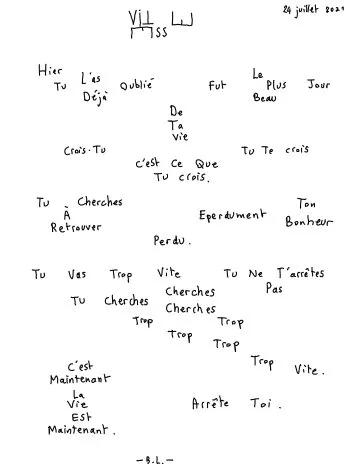 24 juillet 2021
Vit E
E ss
Hier Le
Tu L'as Oublié Fut Plus Jour
Déjà Beau
De
Ta
Vie
Crois-Tu Tu Te crois
C'est Ce Que
Tu crois.
Tu Cherches Ton
À Eperdument Bonheur
Retrouver
Perdu.
Tu Vas Trop Vite Tu Ne T'arrêtes
Cherches Pas
Tu Cherches Cherches
Trop Trop
Trop Trop
Trop Vite.
C'est
Maintenant
La
Vie Arrête Toi.
Est
Maintenant.
-B.L.-